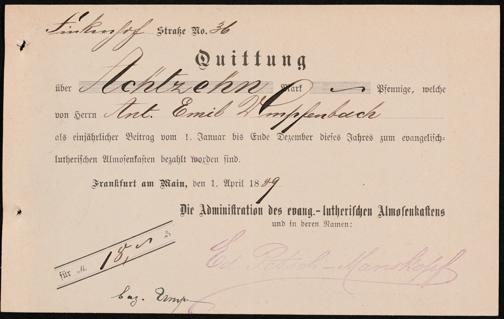 Finkenhof Straße No. 36
Quittung
über Achtzehn Mark Pfennige, welche
von Herrn Ant. Emil Wimpfenbach
als einjährlicher Beitrag vom 1. Januar bis Ende Dezember dieses Jahres zum evangelisch-
lutherischen Almosenkasten bezahlt worden sind.
Frankfurt am Main, den 1. April 1889
Die Administration des evang.-lutherischen Almosenkastens
und in deren Namen:
für M. 18,